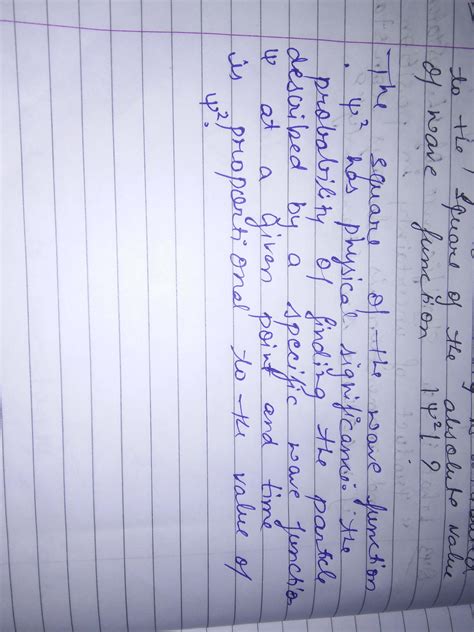 to the square of the absolute value
of wave function |ψ²| ?
The square of the wave function
. ψ² has physical significance: the
probability of finding the particle
described by a specific wave function
ψ at a given point and time
is proportional to the value of
ψ².